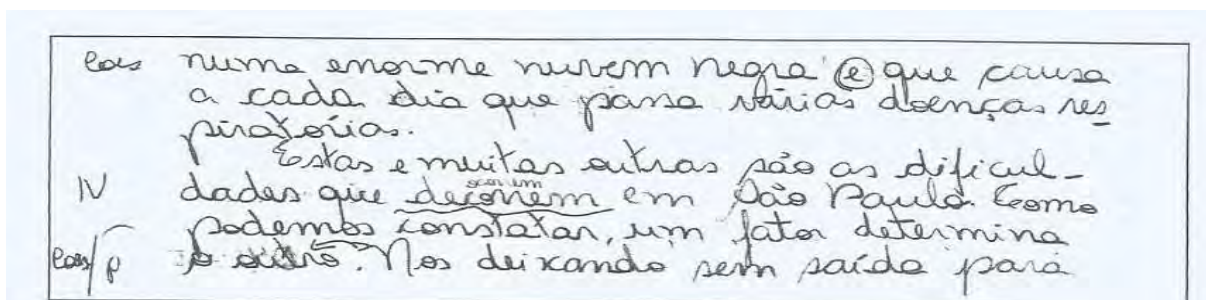 coes numa enorme nuvem negra e que causa
a cada dia que passa várias doenças res
piratórias.
Estas e muitas outras são as dificul-
ocorrem
IV dades que decorrem em São Paulo. Como
podemos constatar, um fator determina
coes/p o outro. Nos deixando sem saída para